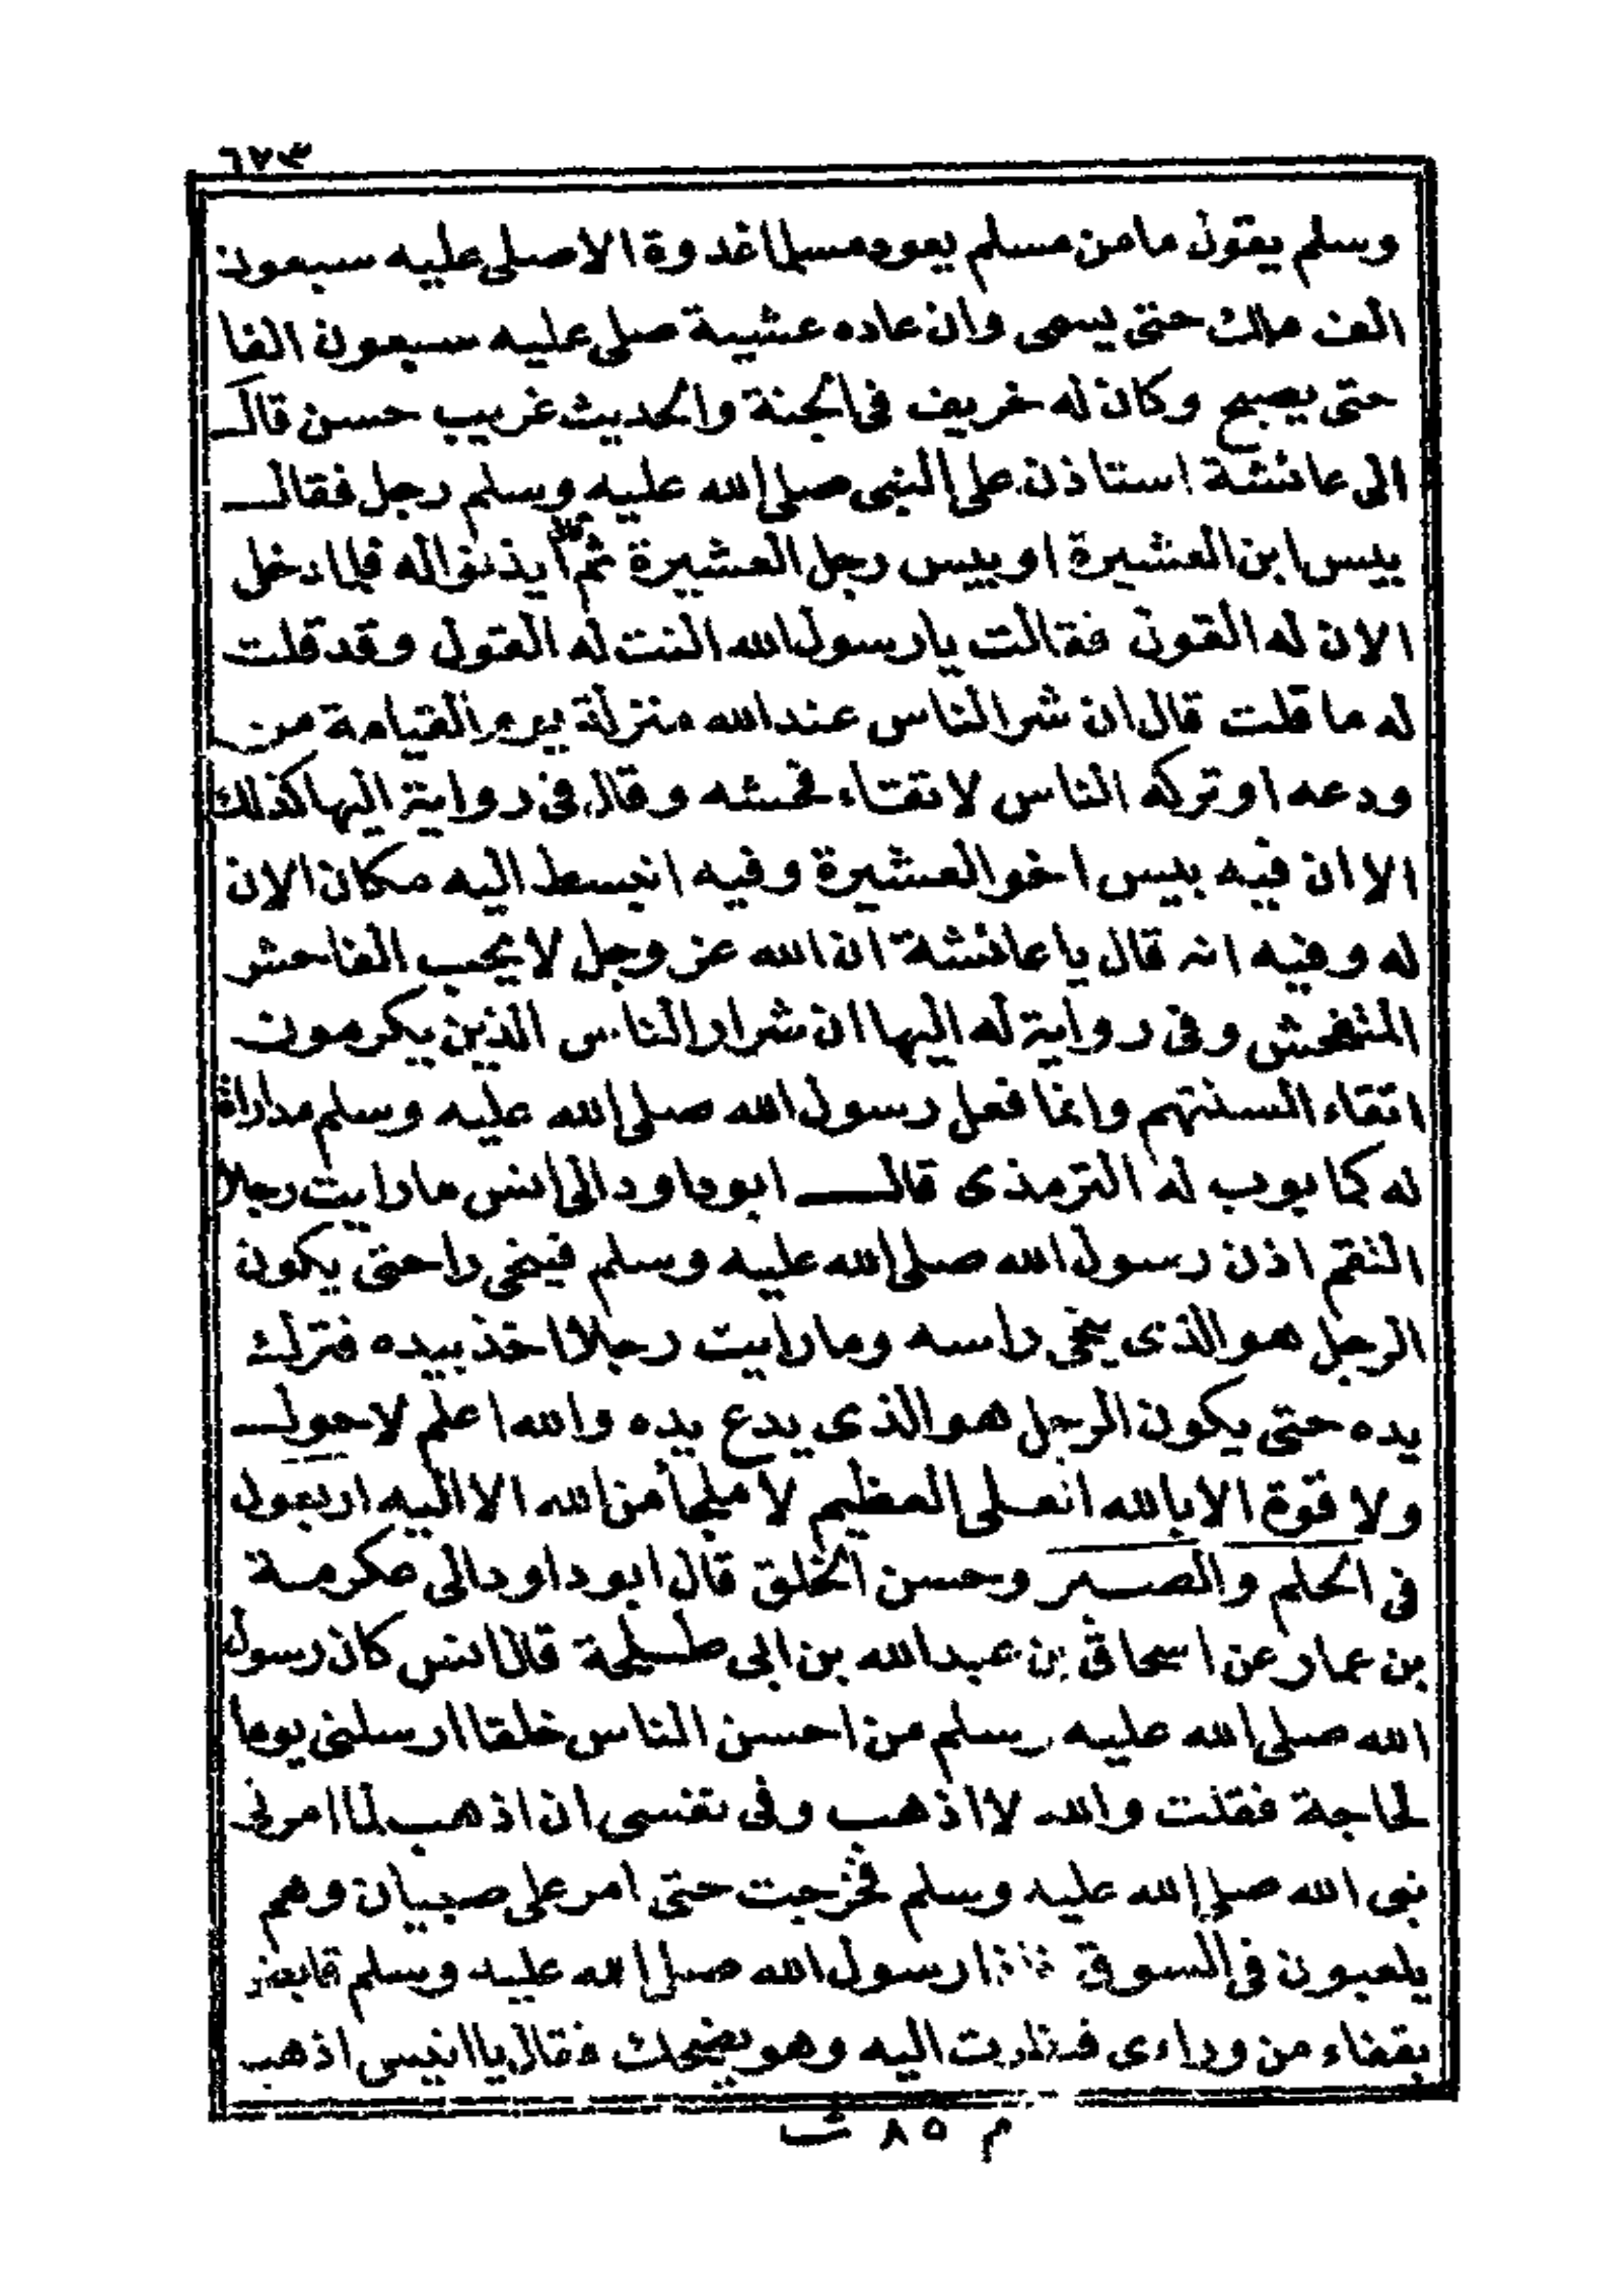 ٦٧٣
وسلم يقول مامن مسلم يعود مسلما غدوة الاصلى عليه سبعون
الف ملك حتى يسمى وان عاده عشية صلى عليه سبعون الفا
حتى يصبح وكان له خريف فى الجنة والحديث غريب حسن قال
الى عائشة استاذن على النبى صلى الله عليه وسلم رجل فقال
بيس ابن العشيرة او بيس رجل العشيرة ثم ايذنوا له فلما دخل
الان له القول فقالت يا رسول الله النت له القول وقد قلت
له ما قلت قال ان شر الناس عند الله منزلة يوم القيامة من
ودعه او تركه الناس لاتقاء فحشه وقال فى رواية اليها كذلك
الا ان فيه بيس اخو العشيرة وفيه انبسط اليه مكان الان
له وفيه انه قال يا عائشة ان الله عز وجل لا يحب الفاحش
المتفحش وفى رواية له اليها ان شرار الناس الذين يكرمون
اتقاء السنتهم وانما فعل رسول الله صلى الله عليه وسلم مداراة
له كما بوب له الترمذى قال ابو داود الى انس ما رايت رجلا
التقم اذن رسول الله صلى الله عليه وسلم فينحى راحتى يكون
الرجل هو الذى ينحى راسه وما رايت رجلا اخذ بيده فترك
يده حتى يكون الرجل هو الذى يدع يده والله اعلم لاحول
ولا قوة الا بالله العلى العظيم لا ملجأ من الله الا اليه اربعول
فى الحلم والصبر وحسن الخلق قال ابو داود الى عكرمة
بن عمار عن اسحاق بن عبد الله بن ابى طلحة قال انس كان رسول
الله صلى الله عليه وسلم من احسن الناس خلقا ارسلنى يوما
لحاجة فقلت والله لا اذهب وفى نفسى ان اذهب لما امرنى
نبى الله صلى الله عليه وسلم فخرجت حتى امر على صبيان وهم
يلعبون فى السوق فاذا رسول الله صلى الله عليه وسلم قابض
بقفاء من وراءى فنظرت اليه وهو يضحك فقال يا انيس اذهب
م ٨٥ ث